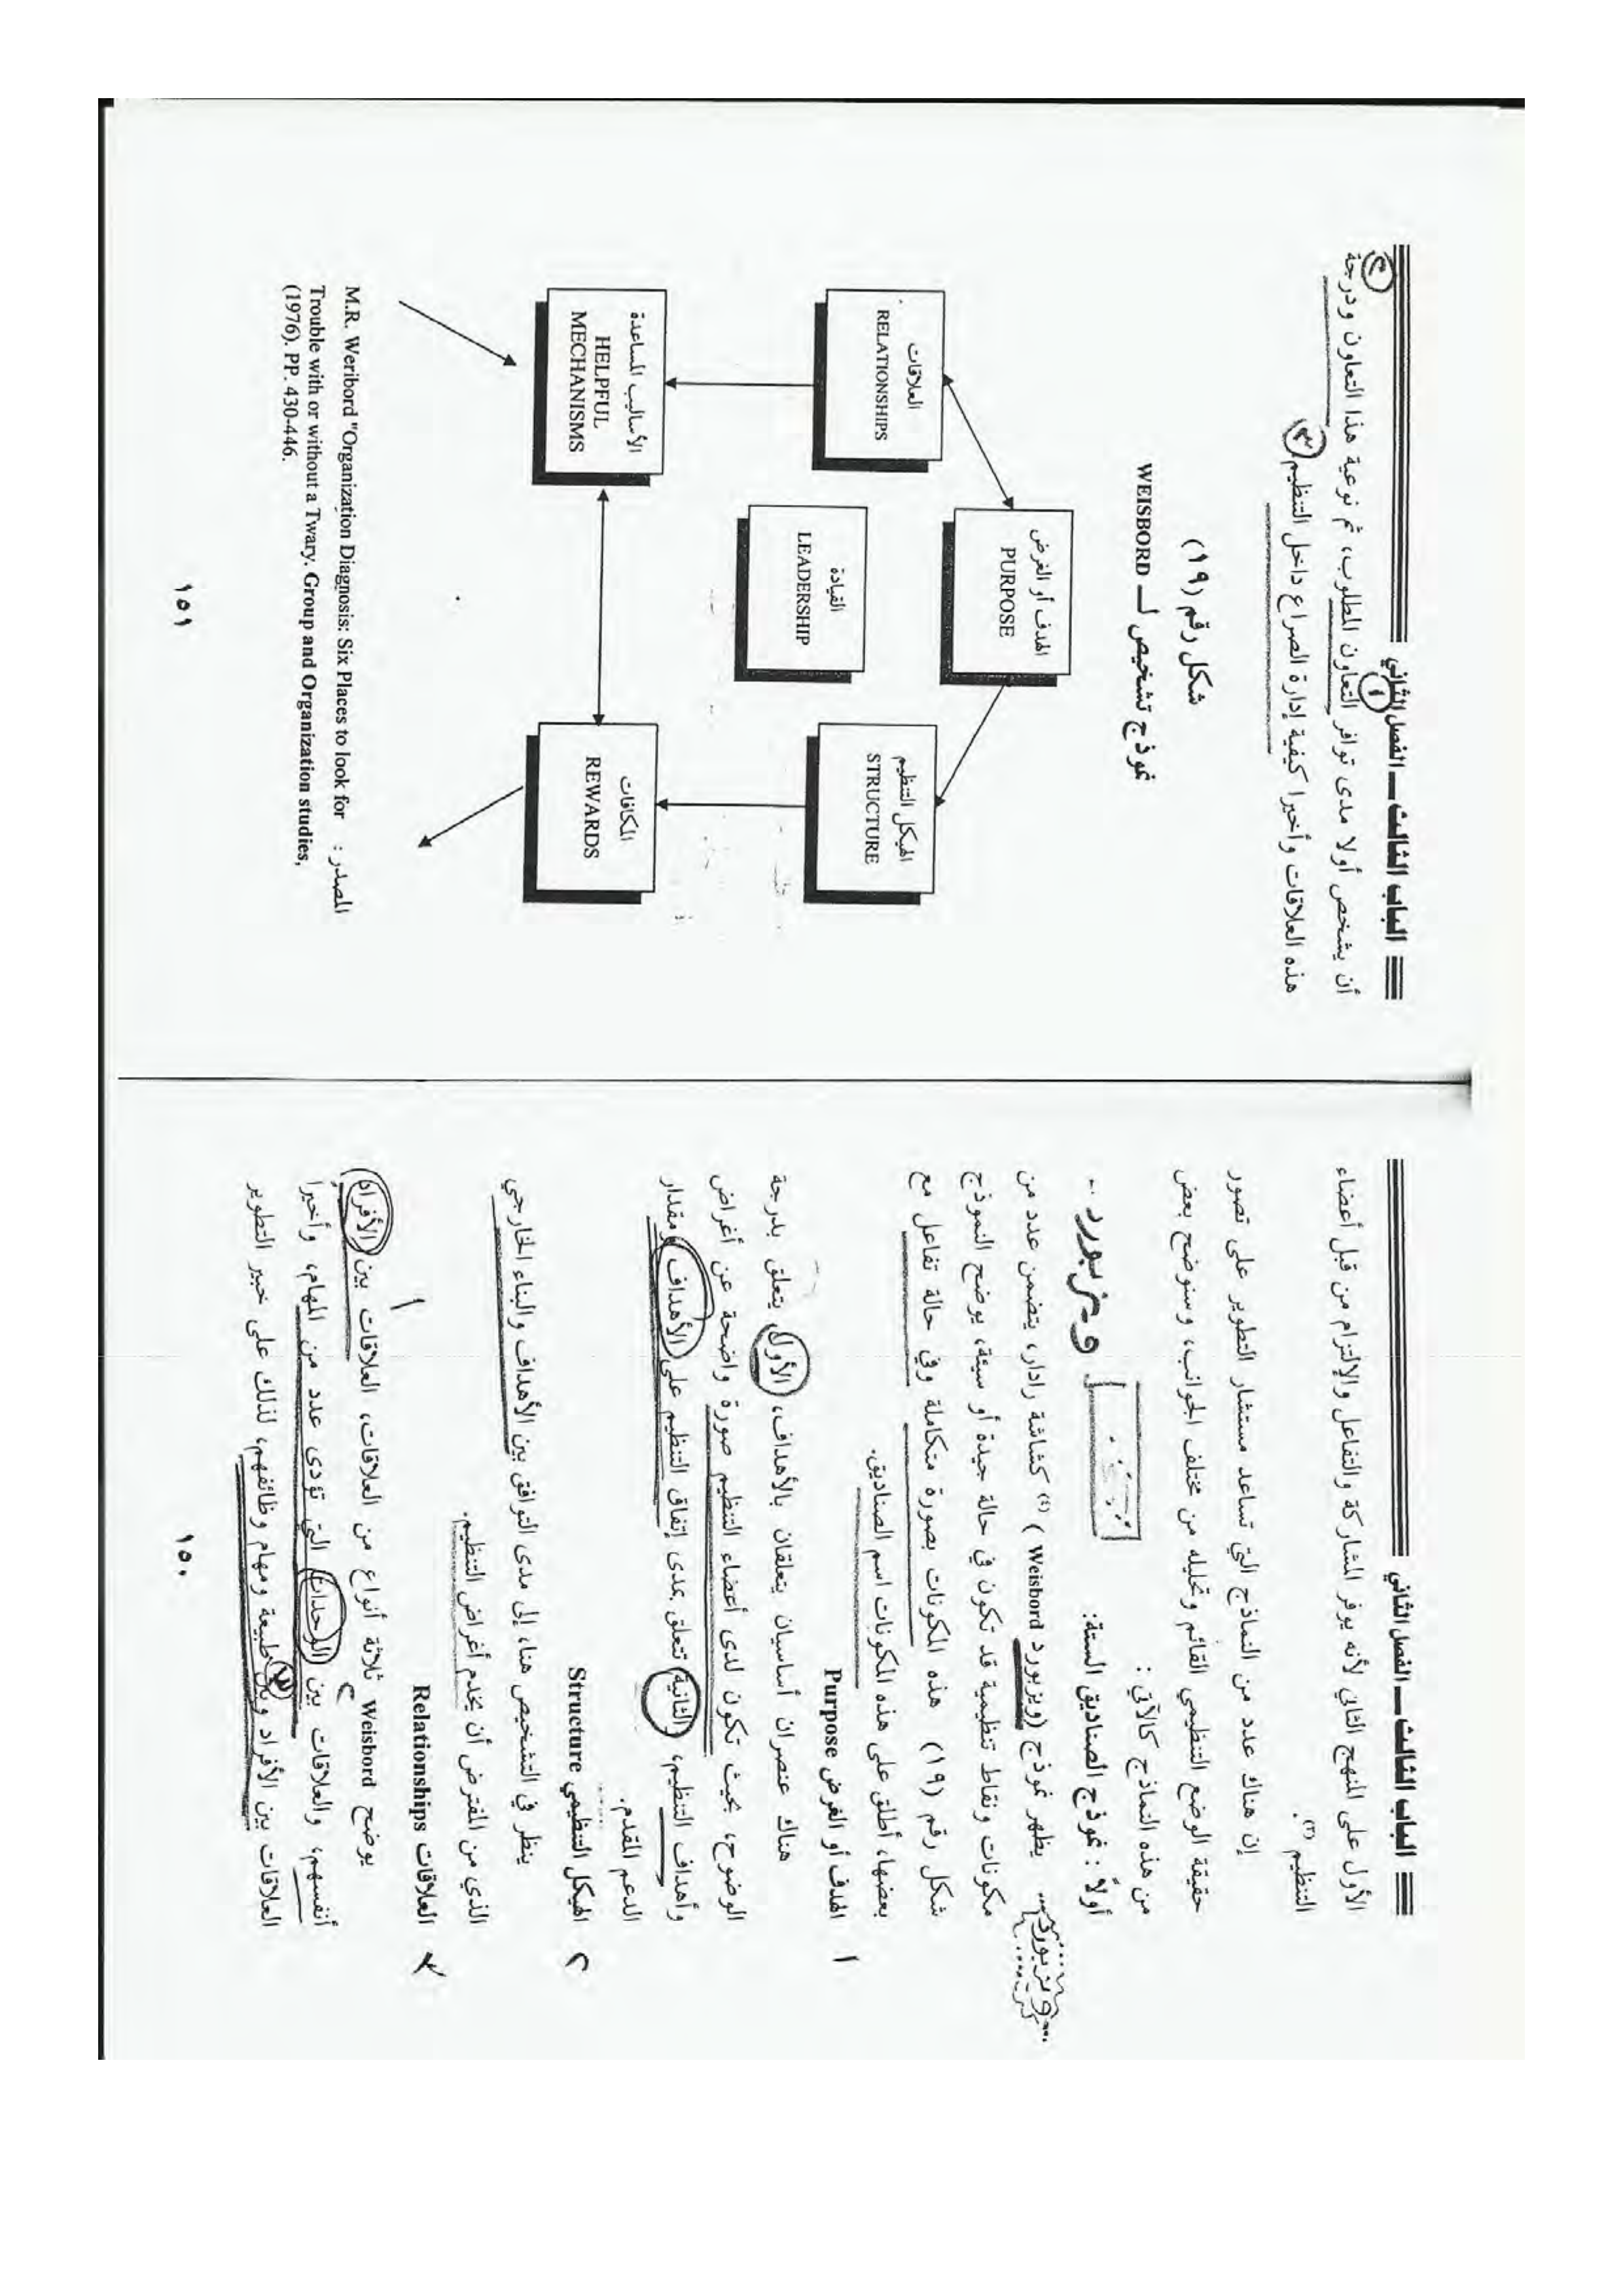 الباب الثالث ــ الفصل الثاني
الأول على المنهج الثاني لأنه يوفر المشاركة والتفاعل والإلتزام من قبل أعضاء
التنظيم (٣).
إن هناك عدد من النماذج التي تساعد مستشار التطوير على تصور
حقيقة الوضع التنظيمي القائم وتحليله من مختلف الجوانب، وسنوضح بعض
من هذه النماذج كالآتي :
أولاً : نموذج الصناديق الستة:
ويزبورد
يظهر نموذج (ويزبورد Weisbord ) (٤) كشاشة رادار، يتضمن عدد من
ويزبورد
مكونات ونقاط تنظيمية قد تكون في حالة جيدة أو سيئة، يوضح النموذج
شكل رقم (١٩) هذه المكونات بصورة متكاملة وفي حالة تفاعل مع
بعضها، أطلق على هذه المكونات اسم الصناديق.
١ الهدف أو الغرض Purpose
هناك عنصران أساسيان يتعلقان بالأهداف، الأول يتعلق بدرجة
الوضوح، بحيث تكون لدى أعضاء التنظيم صورة واضحة عن أغراض
وأهداف التنظيم، الثانية تعلق بمدى إتفاق التنظيم على الأهداف ومقدار
الدعم المقدم.
٢ الهيكل التنظيمي Structure
ينظر في التشخيص هنا، إلى مدى التوافق بين الأهداف والبناء الخارجي
الذي من المفترض أن يخدم أغراض التنظيم.
٣ العلاقات Relationships
يوضح Weisbord ثلاثة أنواع من العلاقات، العلاقات بين الأفراد
١
أنفسهم، والعلاقات بين الوحدات التي تؤدى عدد من المهام، وأخيرا
٢
العلاقات بين الأفراد وبين طبيعة ومهام وظائفهم، لذلك على خبير التطوير
٣
١٥٠
الباب الثالث ــ الفصل الثاني
أن يشخص أولا مدى توافر التعاون المطلوب، ثم نوعية هذا التعاون ودرجة
١
٢
هذه العلاقات وأخيرا كيفية إدارة الصراع داخل التنظيم
٣
شكل رقم (١٩)
نموذج تشخيص لـ WEISBORD
الهدف أو الغرض
PURPOSE
العلاقات
RELATIONSHIPS
الهيكل التنظيم
STRUCTURE
القيادة
LEADERSHIP
الأساليب المساعدة
HELPFUL
MECHANISMS
المكافات
REWARDS
المصدر : M.R. Weribord "Organization Diagnosis: Six Places to look for
Trouble with or without a Twary. Group and Organization studies,
(1976). PP. 430-446.
١٥١